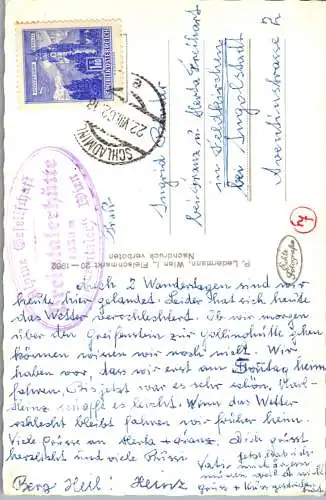 REPUBLIK ÖSTERREICH
SCHLADMING
22.VII.62
Ingrid
bei Franz u. Herta Freihart
in Feldkirchen
bei Ingolstadt
Aventinstrasse 2
P. Ledermann, Wien I., Fleischmarkt 20 — 1962
Nachdruck verboten
Echte Fotografie
Nach 2 Wandertagen sind wir
heute hier gelandet. Leider hat sich heute
das Wetter verschlechtert. Ob wir morgen
über den Greifenstein zur Gollinghütte gehen
können wissen wir noch nicht. Wir
haben vor, dass wir erst am Freitag heim
fahren. Bis jetzt war es sehr schön,
Heinz schaffte es leicht. Wenn das Wetter
schlecht bleibt fahren wir früher heim.
Viele Grüsse an Herta + Franz. Dich grüsst
herzlichst und viele Küsse
Vati
Berg Heil! Heinz